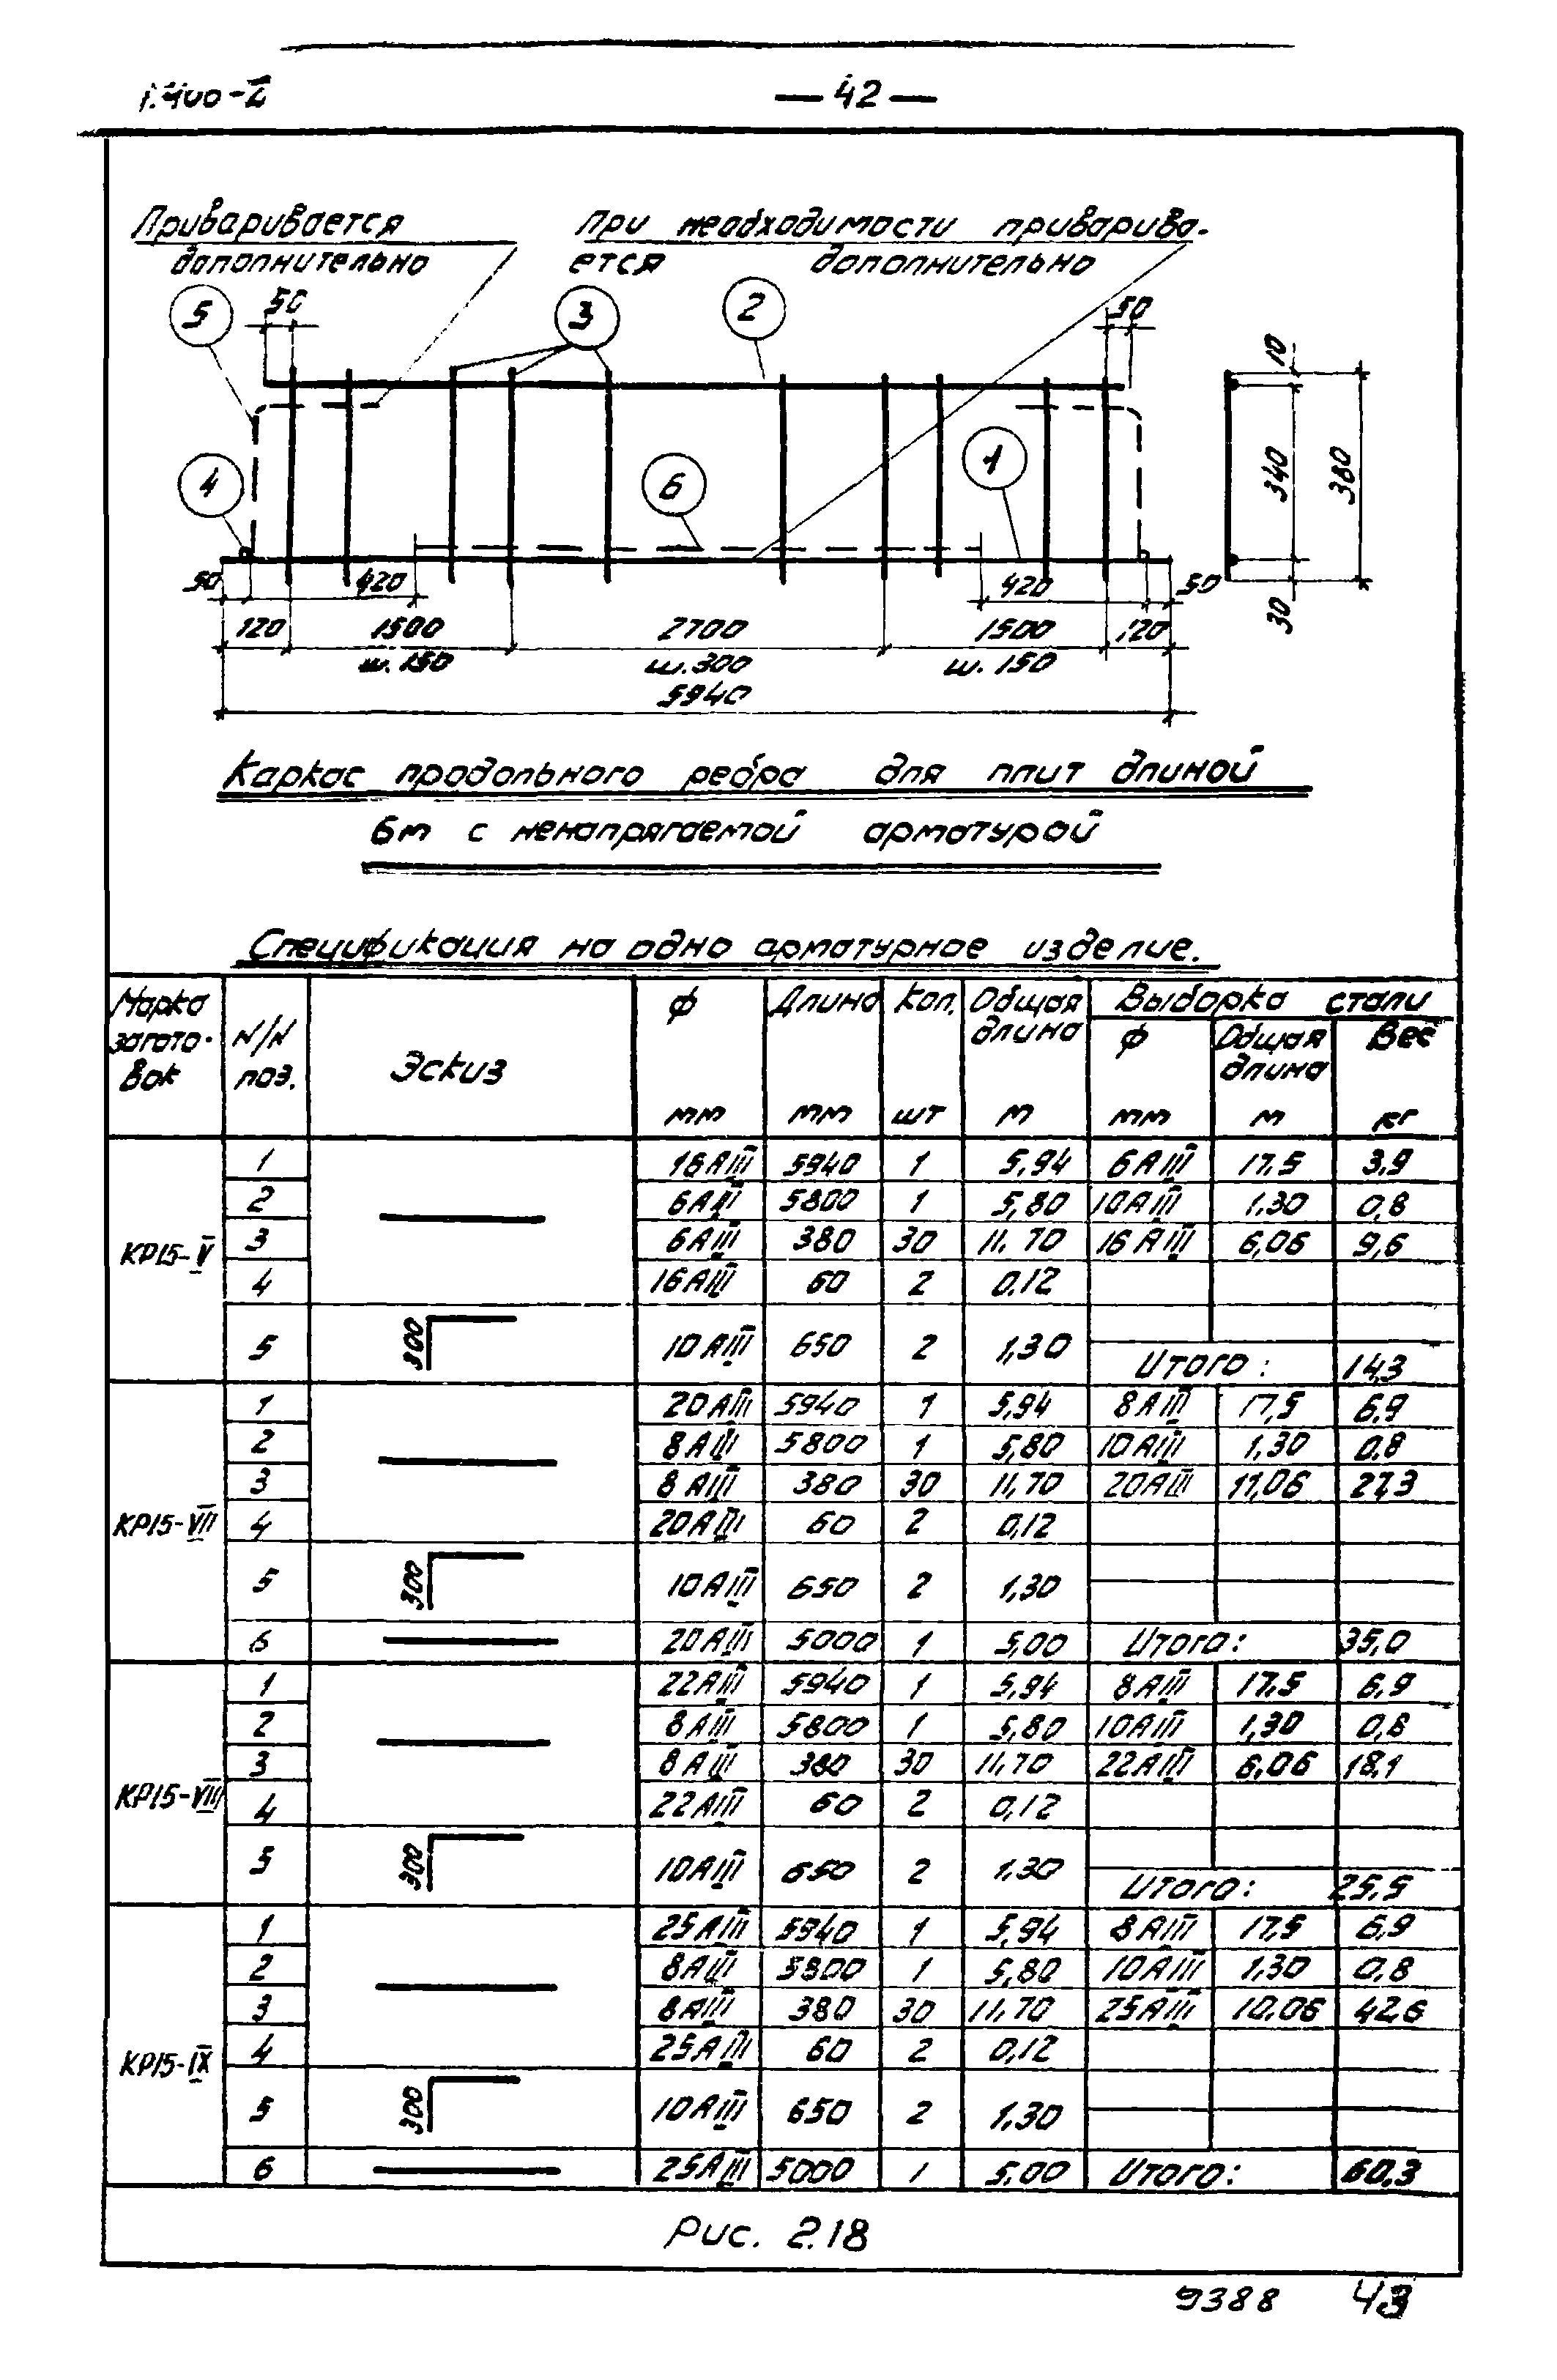 1.400-2
— 42 —
Приваривается
дополнительно
При необходимости приварива-
ется дополнительно
5 50 3 2 50 10
4 6 1 340 380
50 420 420 50 30
120 1500 2700 1500 120
ш.150 ш.300 ш.150
5940
Каркас продольного ребра для плит длиной
6м с ненапрягаемой арматурой
Спецификация на одно арматурное изделие.
Марка загото-вок N/N поз. Эскиз ф мм Длина мм Кол. шт Общая длина м Выборка стали
ф мм Общая длина м Вес кг
КР15-V
1 16АIII 5940 1 5,94 6АIII 17.5 3,9
2 6АIII 5800 1 5,80 10АIII 1,30 0,8
3 6АIII 380 30 11.70 16АIII 6,06 9,6
4 16АIII 60 2 0.12
5 300 10АIII 650 2 1,30 Итого: 14,3
КР15-VII
1 20АIII 5940 1 5,94 8АIII 17,5 6,9
2 8АIII 5800 1 5,80 10АIII 1,30 0,8
3 8АIII 380 30 11,70 20АIII 11,06 27,3
4 20АIII 60 2 0,12
5 300 10АIII 650 2 1,30
6 20АIII 5000 1 5,00 Итого: 35,0
КР15-VIII
1 22АIII 5940 1 5,94 8АIII 17,5 6,9
2 8АIII 5800 1 5,80 10АIII 1,30 0,8
3 8АIII 380 30 11,70 22АIII 6,06 18,1
4 22АIII 60 2 0,12
5 300 10АIII 650 2 1,30 Итого: 25,5
КР15-IX
1 25АIII 5940 1 5,94 8АIII 17,5 6,9
2 8АIII 5800 1 5,80 10АIII 1,30 0,8
3 8АIII 380 30 11,70 25АIII 10,06 42,6
4 25АIII 60 2 0,12
5 300 10АIII 650 2 1,30
6 25АIII 5000 1 5,00 Итого: 60,3
Рис. 2.18
9388 43